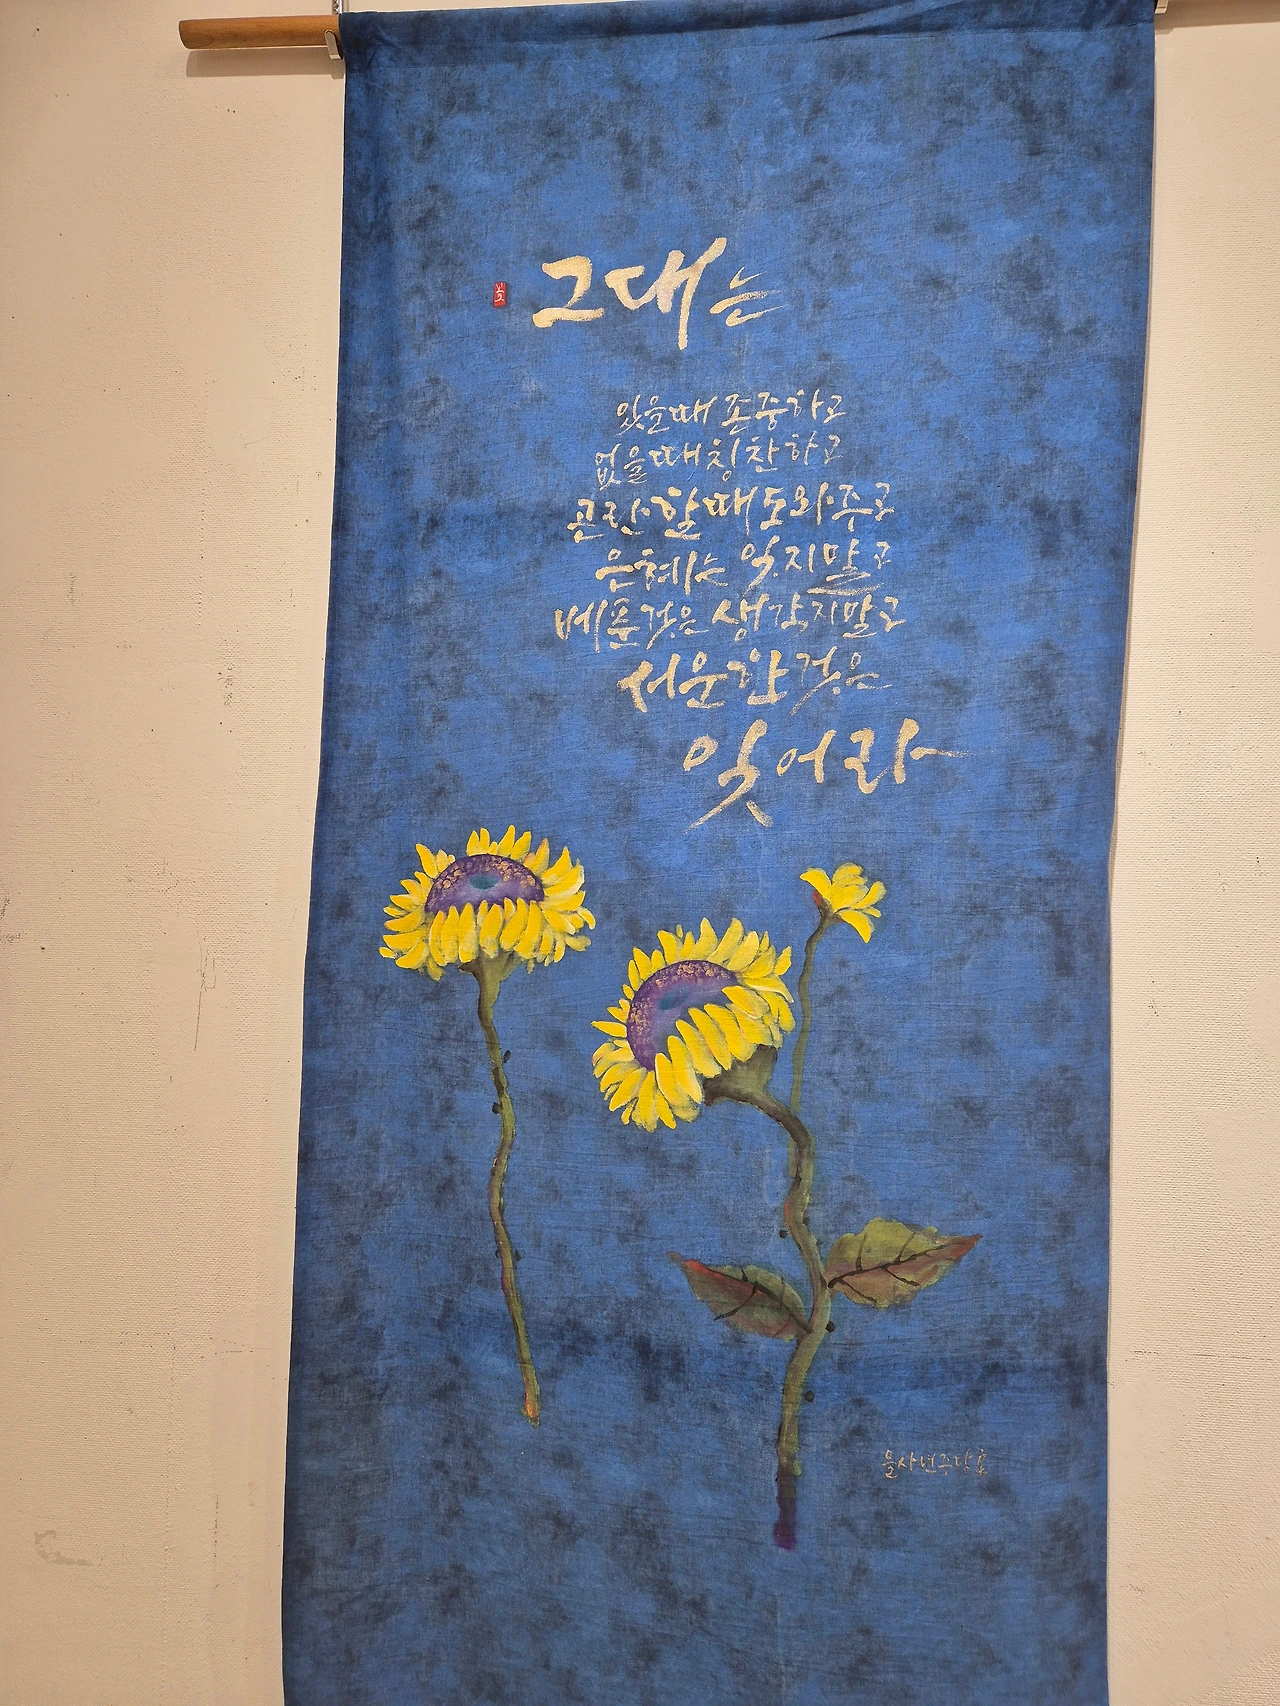 그대는
있을때 존중하고
없을때 칭찬하고
곤란할때 도와주고
은혜는 잊지말고
베푼것은 생각지말고
서운한것은
잊어라
을사년주당